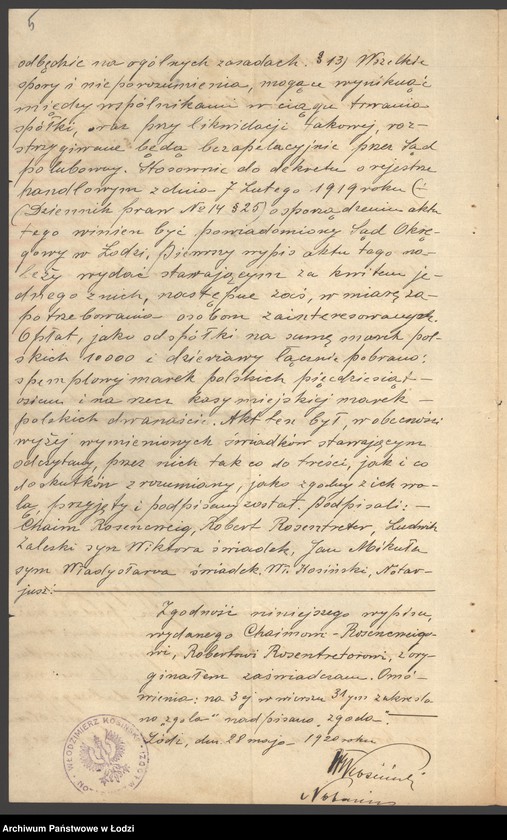 5
odbędzie na ogólnych zasadach. § 13) Wszelkie
spory i nieporozumienia, mogące wyniknąć
między wspólnikami w ciągu trwania
spółki, oraz przy likwidacji takowej, roz-
strzygiwane będą bezapelacyjnie przez Sąd
polubowny. Stosownie do dekretu o rejestrze
handlowym z dnia 7 Lutego 1919 roku (-
(Dziennik praw № 14 § 25) o sporządzeniu aktu
tego winien być powiadomiony Sąd Okrę-
gowy w Łodzi. Pierwszy wypis aktu tego na-
leży wydać stawającym za kwitem je-
dnego z nich, następne zaś, w miarę za-
potrzebowania osobom zainteresowanych.
Opłat, jako od spółki na sumę marek pol-
skich 10000 i dzierżawy łącznie pobrano:
stemplowej marek polskich pięćdziesiąt-
osiem i na rzecz kasy miejskiej marek -
polskich dwanaście. Akt ten był, w obecności
wyżej wymienionych świadków stawającym
odczytany, przez nich tak co do treści, jak i co
do skutków zrozumiany, jako zgodny z ich wo-
lą, przyjęty i podpisany został. Podpisali: -
Chaim Rosencweig, Robert Rosentreter, Ludwik
Zaleski syn Wiktora świadek, Jan Mikuła
syn Władysława świadek. Wł. Kosiński, Notar-
jusz.
Zgodność niniejszego wypisu,
wydanego Chaimowi-Rosencweigo-
wi, Robertowi Rosentreterowi, z ory-
ginałem zaświadczam. Omó-
wienia: na 3ej w wierszu 31ym zakreślo-
no „zgola" nadpisano „zgoda".
Łódź, dnia 28 maja 1920 roku
WKosiński
Notariusz
WŁODZIMIERZ KOSIŃSKI
Archiwum Państwowe w Łodzi